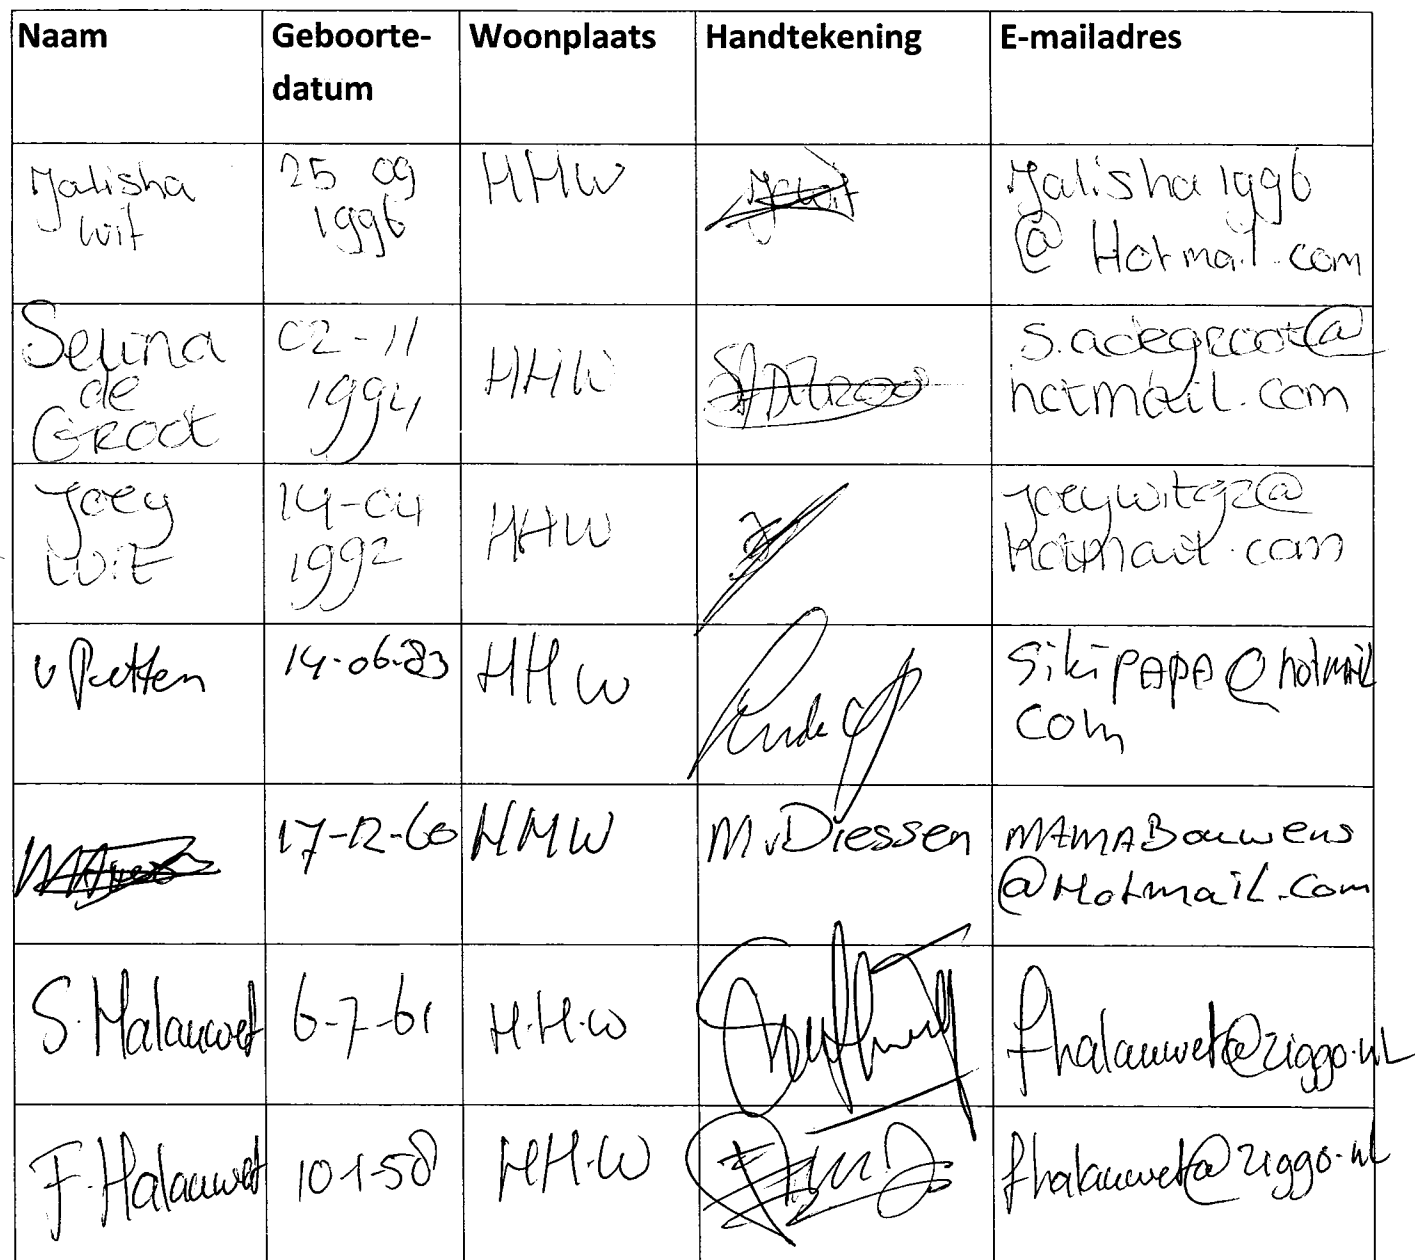 Naam
Geboorte-
datum
Woonplaats
Handtekening
E-mailadres
Yalisha
Wit
25 09
1996
HHW
Yalisha1996
@Hotmail.com
Selina
de
Groot
02-11
1994
HHW
s.adegroot@
hotmail.com
Joey
Wit
14-04
1992
HHW
joeywit92@
hotmail.com
v Putten
14-06-83
HHW
SikiPAPA@hotmail
com
17-12-60
HHW
M.vDiessen
MAMABouwens
@Hotmail.com
S.Halauwet
6-7-61
H.H.W
fhalauwet@ziggo.nl
F.Halauwet
10-1-58
HH.W
fhalauwet@ziggo.nl